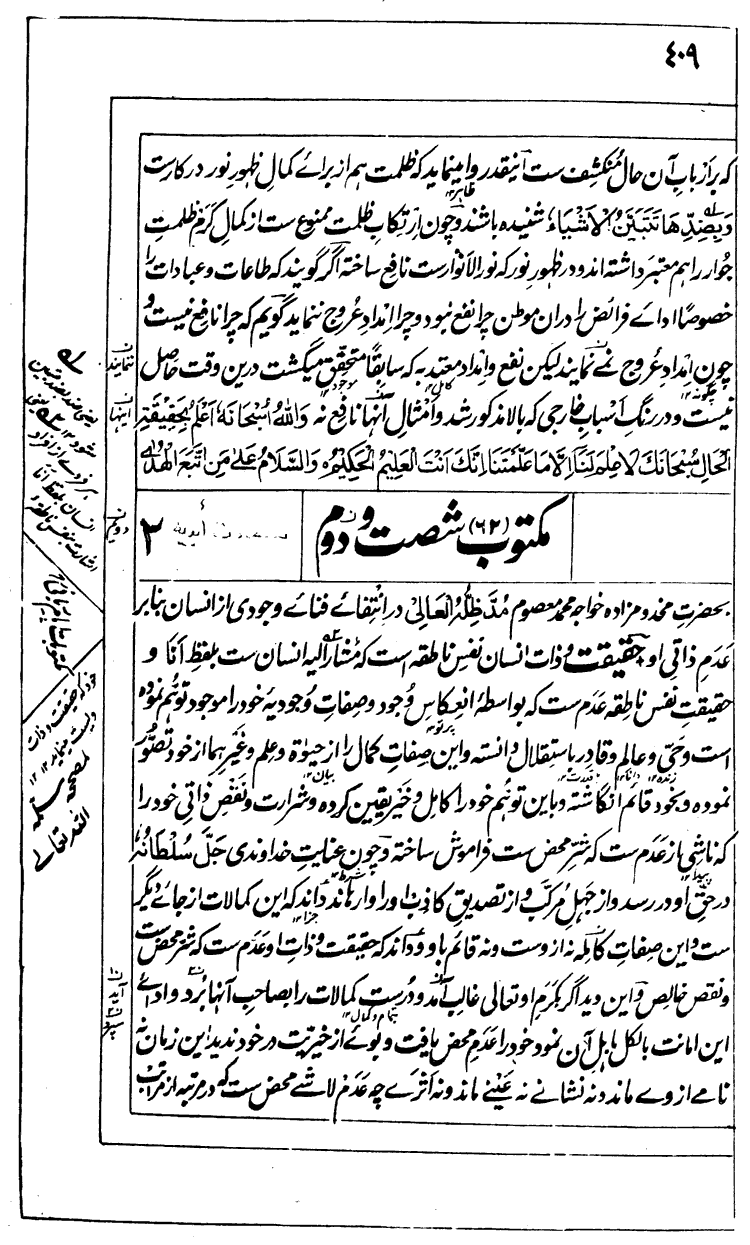 ٤٠٩
که بر ارباب آن حال منکشف ست آنقدر وا مینماید که ظلمت هم از برائے کمال ظهور نور در کارست
وَبِضِدِّهَا تَتَبَيَّنُ الْاَشْيَاءُ شنیده باشند و چون ارتکاب ظلمت ممنوع ست از کمال کرم ظلمت
جوار را هم معتبر داشته اند و در ظهور نور که نور الانوارست نافع ساخته اگر گویند که طاعات و عبادات را
خصوصًا ادائے فرائض را در ان موطن چرا نفع نبود و چرا امداد عروج ننماید گویم که چرا نافع نیست و
چون امداد عروج نمے نمایند لیکن نفع و امداد معتد به که سابقًا متحقق میگشت درین وقت حاصل
نیست و در رنگ اسباب خارجی که بالا مذکور شد و امثال آنها نافع نه وَاللّٰهُ سُبْحَانَهٗ اَعْلَمُ بِحَقِيْقَةِ
الْحَالِ سُبْحَانَكَ لَا عِلْمَ لَنَا اِلَّا مَا عَلَّمْتَنَا اِنَّكَ اَنْتَ الْعَلِيْمُ الْحَكِيْمُ وَالسَّلَامُ عَلٰى مَنِ اتَّبَعَ الْهُدٰى
مکتوب (٦٢) شصت و دوم
٢
بحضرت مخدومزاده خواجه محمد معصوم مُدَّ ظِلُّهُ الْعَالِیْ در انتقائے فنائے وجودی از انسان بنا بر
عدم ذاتی او حقیقت و ذات انسان نفس ناطقه است که مشار الیه انسان ست بلفظ اَنَا و
حقیقت نفس ناطقه عدم ست که بواسطۀ انعکاس وجود و صفات وجودیه خود را موجود توهم نموده
است و حی و عالم و قادر باستقلال دانسته و این صفات کمال را از حیٰوة و علم و غیر هما از خود تصور
نموده و بخود قائم انگاشته و باین توهم خود را کامل و خیر یقین کرده و شرارت و نقص ذاتی خود را
که ناشی از عدم ست که شر محض ست فراموش ساخته و چون عنایت خداوندی جَلَّ سُلْطَانُهٗ
در حق او در رسد و از جهل مرکب و از تصدیق کاذب او را وا رهاند داند که این کمالات از جائے دیگر
ست و این صفات کامله نه از وست و نه قائم باو و داند که حقیقت و ذات او عدم ست که شر محض ست
و نقص خالص و این دید اگر بکرم او تعالی غالب آمد و درست کمالات را بصاحب آنها برد و ادائے
این امانت بالکل باهل آن نمود خود را عدم محض یافت و بوئے از خیریت در خود ندید این زمان نه
نامے از وے ماند و نه نشانے نه عینے ماند و نه اثرے چه عدم لا شے محض ست که در مرتبه از مراتب
نمایند
اینها